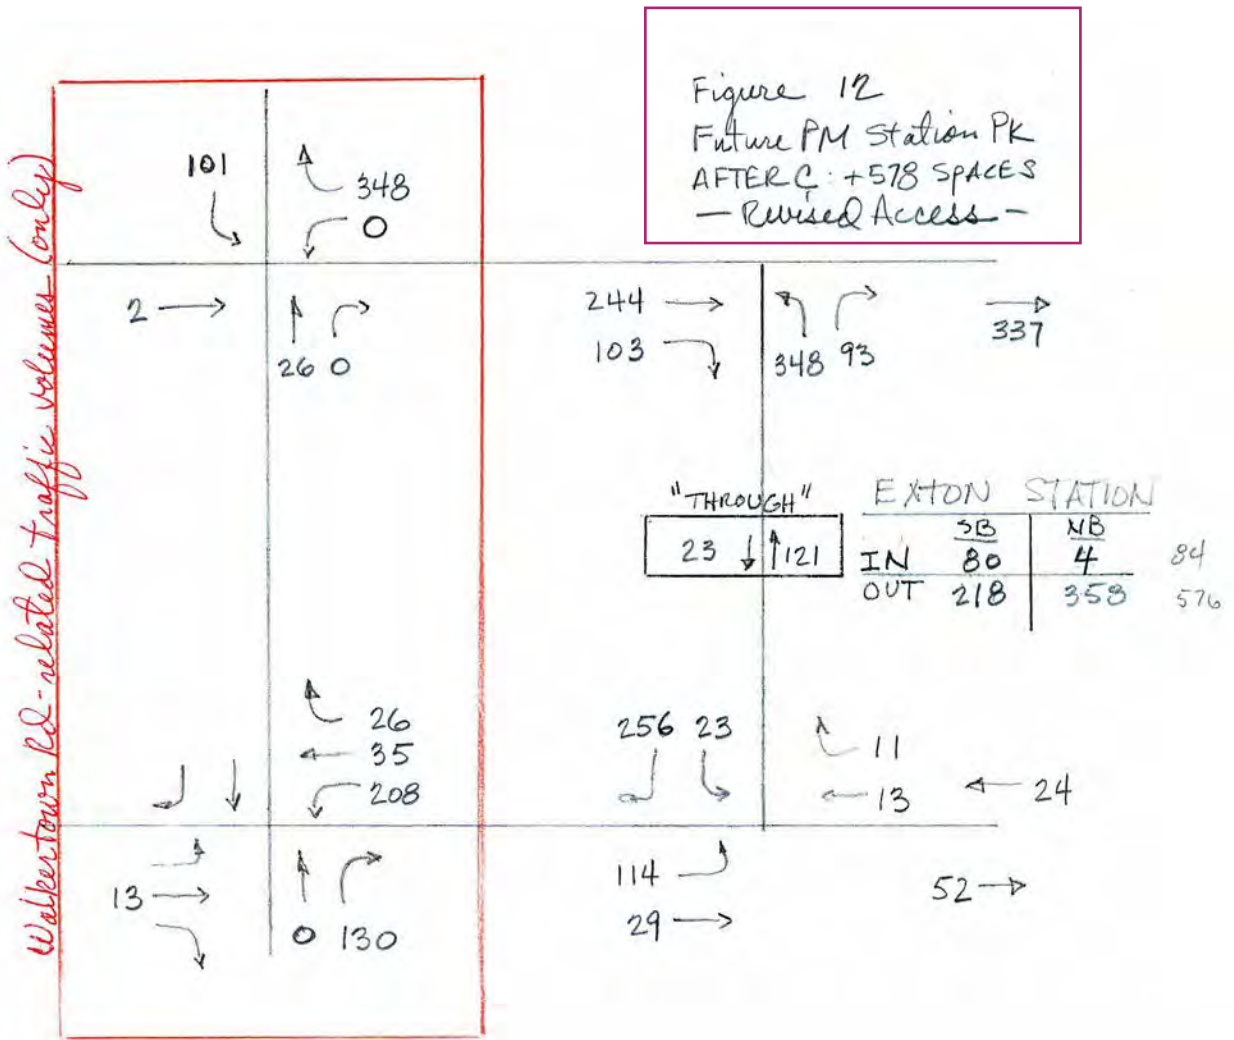 Figure 12
Future PM Station PK
AFTER C: +578 SPACES
— Revised Access —
Walkertown Rd-related traffic volumes (only)
101
348
0
2
26 0
244
103
348 93
337
"THROUGH"
23 121
EXTON STATION
SB NB
IN 80 4 84
OUT 218 358 576
26
35
208
256 23
11
13
24
13
0 130
114
29
52